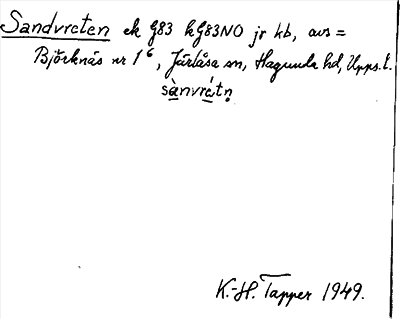 Sandvreten ek G83 kG83NO jr kb, avs=
Björknäs nr 1⁶, Järlåsa sn, Hagunda hd, Upps. l.
sànvrétn̥
K.-H. Tapper 1949.